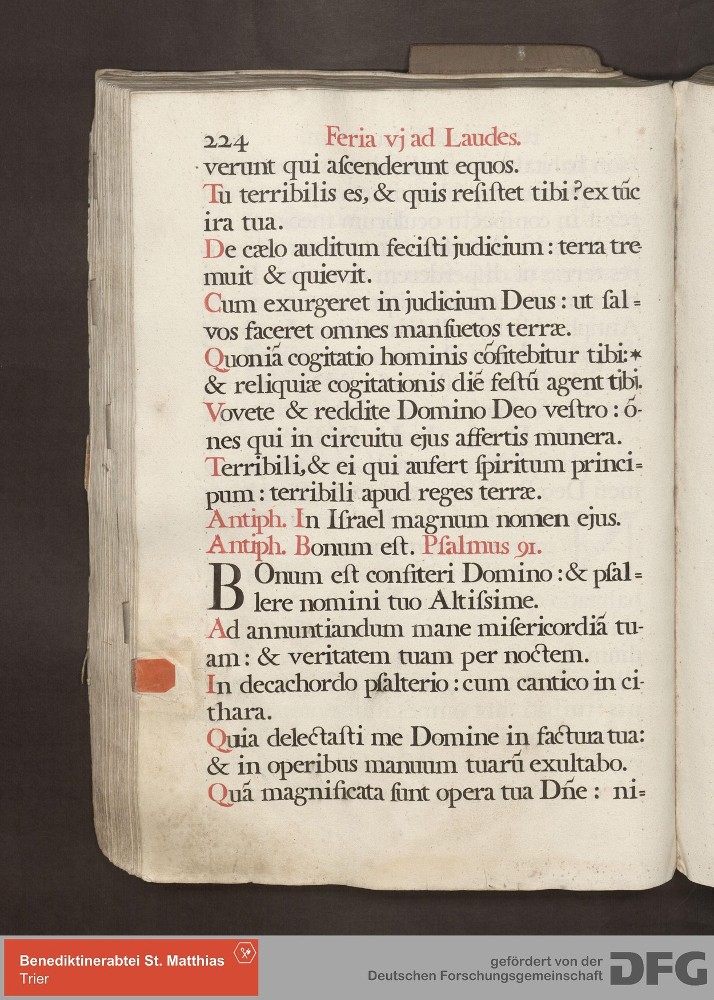 224 Feria vj ad Laudes.
verunt qui aſcenderunt equos.
Tu terribilis es, & quis reſiſtet tibi? ex tũc
ira tua.
De cælo auditum feciſti judicium : terra tre
muit & quievit.
Cum exurgeret in judicium Deus : ut ſal=
vos faceret omnes manſuetos terræ.
Quoniã cogitatio hominis cõfitebitur tibi:*
& reliquiæ cogitationis diẽ feſtũ agent tibi.
Vovete & reddite Domino Deo veſtro : õ-
nes qui in circuitu ejus affertis munera.
Terribili, & ei qui aufert ſpiritum princi=
pum : terribili apud reges terræ.
Antiph. In Iſrael magnum nomen ejus.
Antiph. Bonum eſt. Pſalmus 91.
BOnum eſt confiteri Domino : & pſal=
lere nomini tuo Altiſsime.
Ad annuntiandum mane miſericordiã tu-
am : & veritatem tuam per noctem.
In decachordo pſalterio : cum cantico in ci-
thara.
Quia delectaſti me Domine in factura tua:
& in operibus manuum tuarũ exultabo.
Quã magnificata ſunt opera tua Dñe : ni=
Benediktinerabtei St. Matthias
Trier
gefördert von der
Deutschen Forschungsgemeinschaft DFG